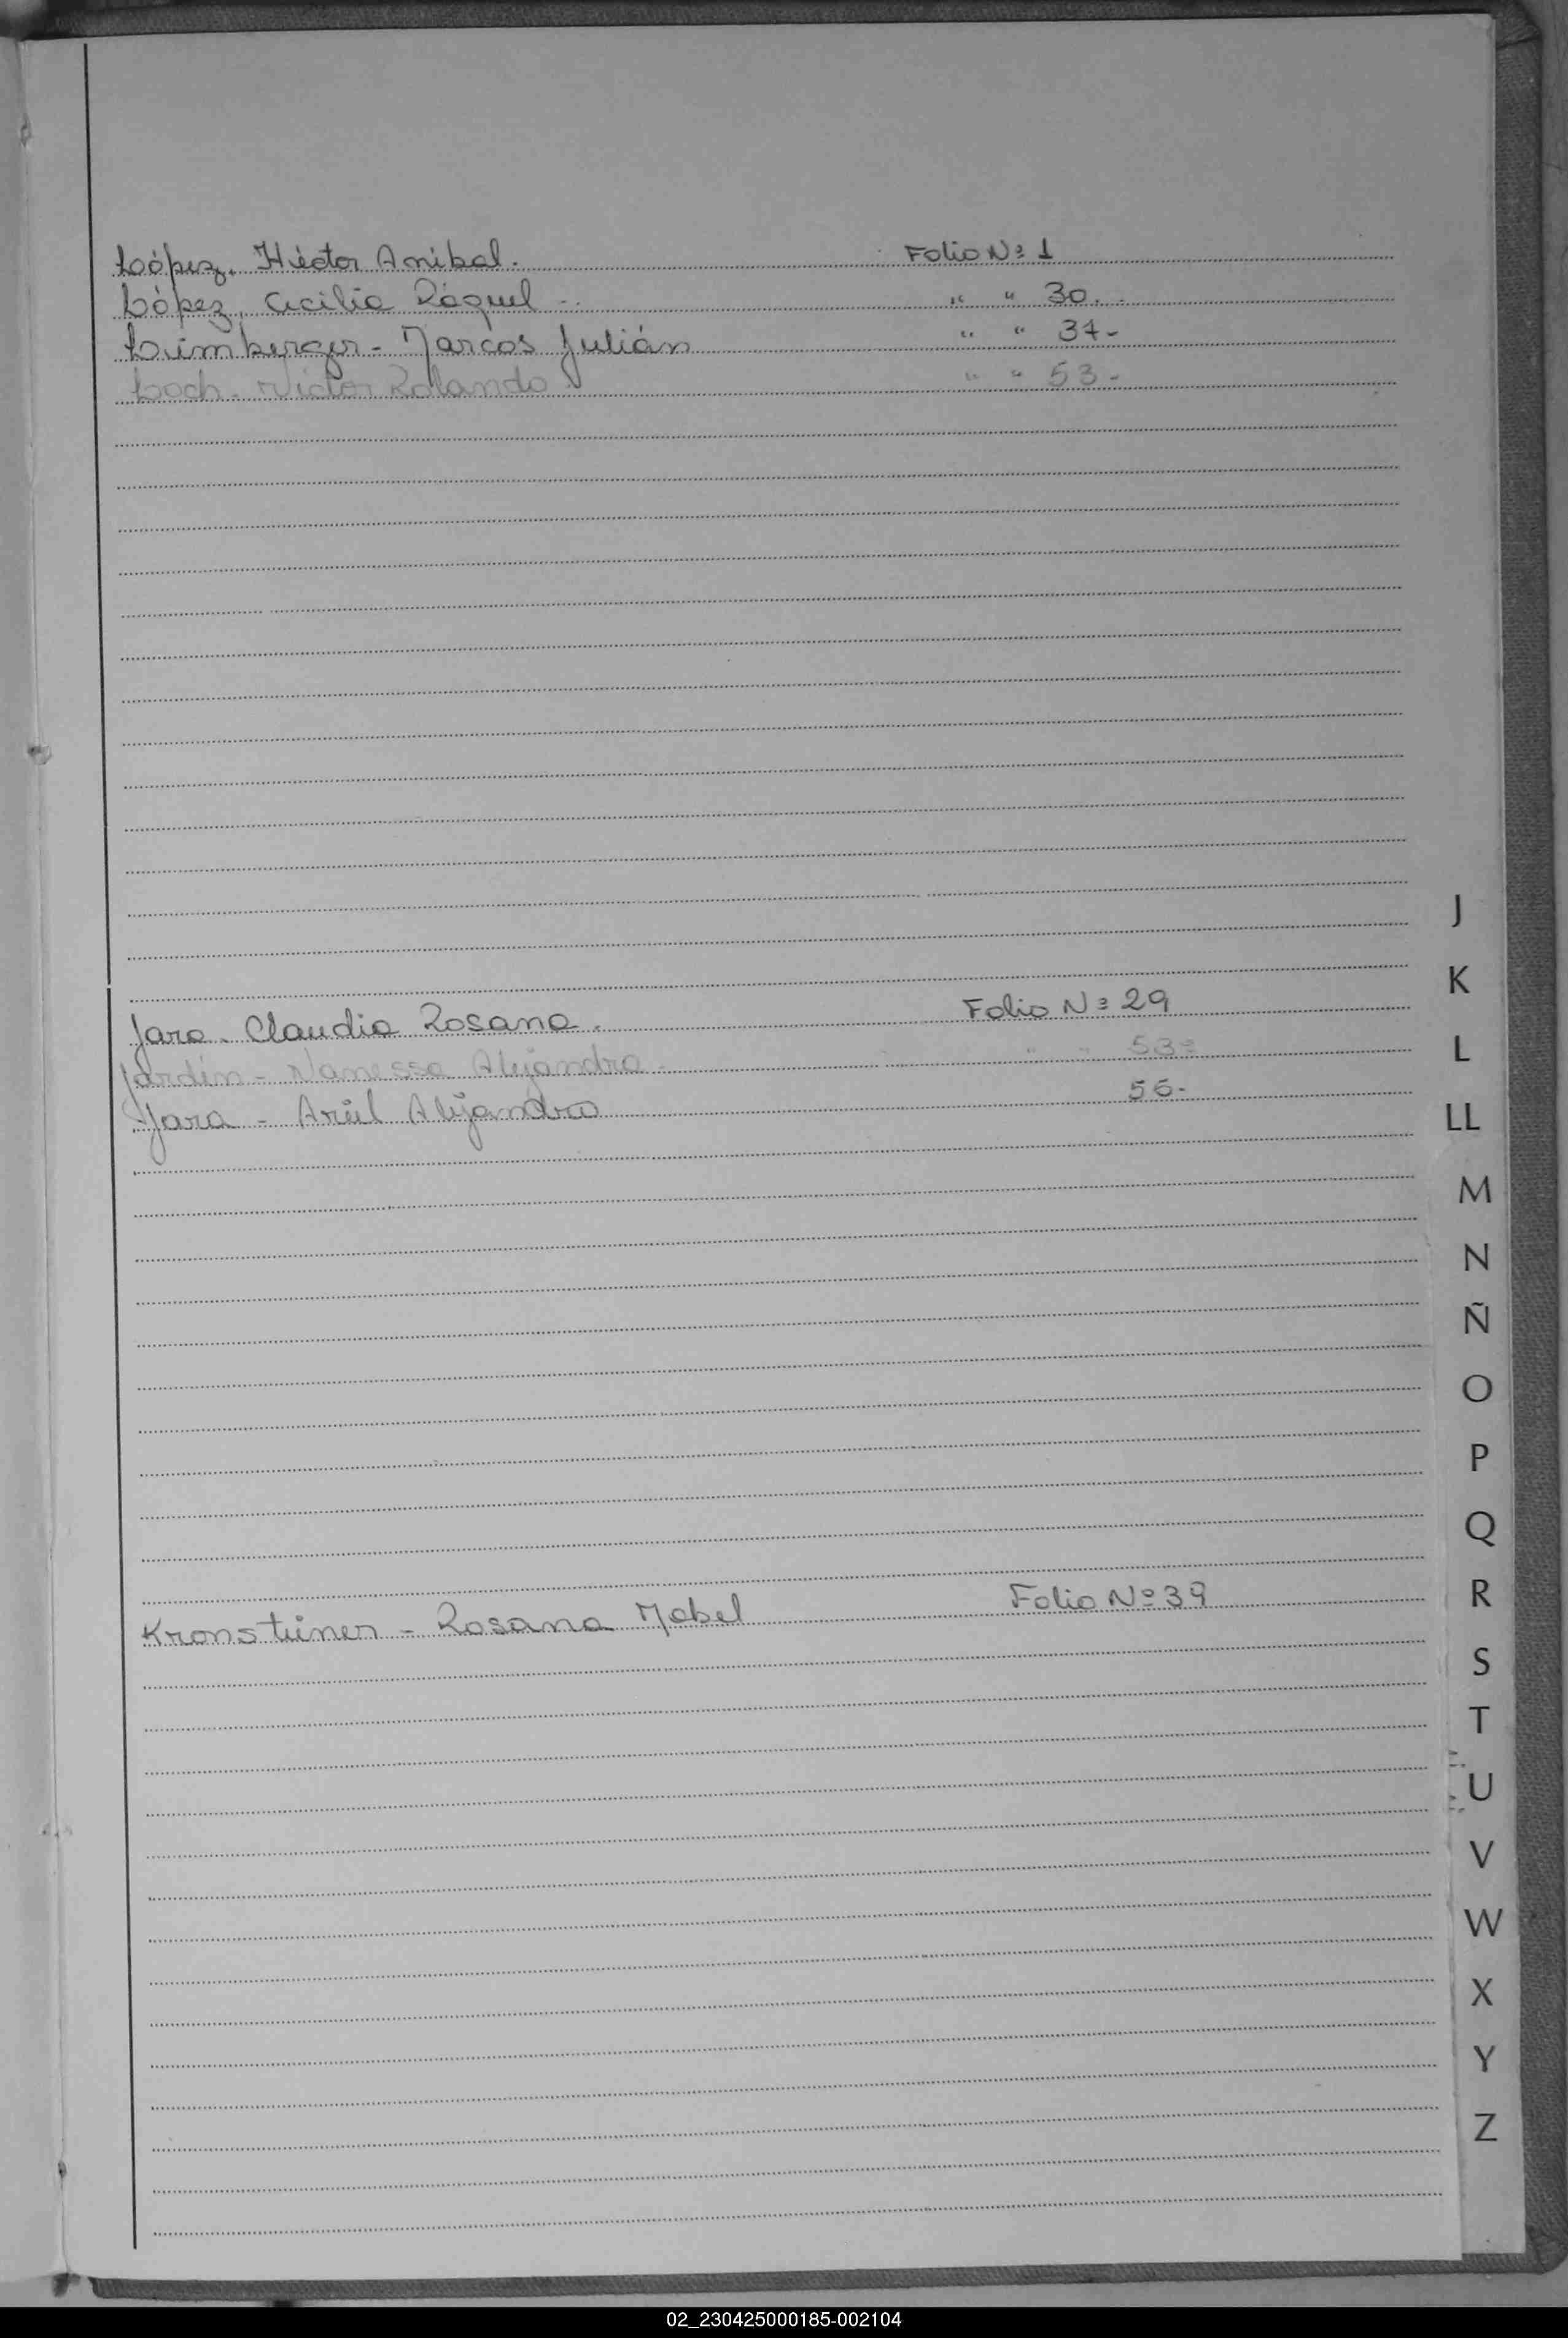 López. Héctor Anibal. Folio Nº 1
López, Cecilia Ráquel - " " 30.-
Leimberger - Marcos Julián " " 37-
Loch. Victor Rolando " " 53-
J
K
Jara. Claudia Rosana. Folio Nº 29
L
Jardín - Vanessa Alejandra. " " 53-
Jara - Ariel Alejandro 56-
LL
M
N
Ñ
O
P
Q
R
Kronsteiner - Rosana Mabel Folio Nº 39
S
T
U
V
W
X
Y
Z
02_230425000185-002104